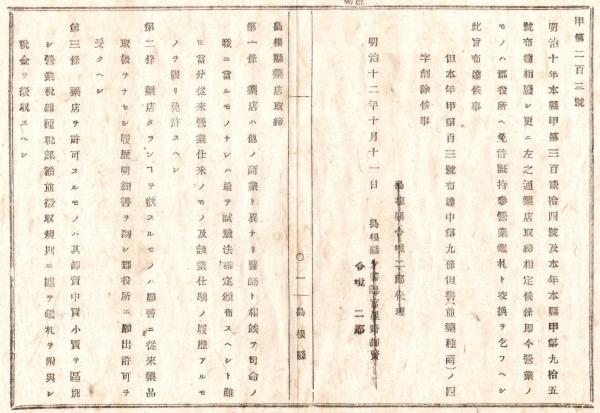 甲第二百三號
明治十年本縣甲第三百貳拾四號及本年本縣甲第九拾五
號布達相廢シ更ニ左之通藥店取締相定候條即今營業ノ
モノハ郡役所ヘ免許証持參營業鑑札ト交換ヲ乞フヘシ
此旨布達候事
但本年甲第百三號布達中第九條但書(並藥種商)ノ四
字削除候事
明治十二年十月十一日
島根縣令境二郎代理
島根縣
令境二郎
〇一
島根縣
島根縣藥店取締
第一條 藥店ハ他ノ商業ト異ナリ醫師ト相俟テ司命ノ
職ニ當ルモノナレハ追テ試驗法確定頒布スヘシト雖
モ當分從來營業仕來ノモノ及該業仕馴ノ履歷アルモ
ノヲ限リ免許スヘシ
第二條 藥店タランコヲ欲スルモノハ願書ニ從來藥品
取扱ヲナセシ履歷明細書ヲ副シ郡役所エ願出許可ヲ
受クヘシ
第三條 藥店ヲ許可スルモノハ其卸賣中買小賣ヲ區別
シ營業稅雜種稅課額並徵收規則ニ據テ鑑札ヲ附與シ
稅金ヲ徵収スヘシ